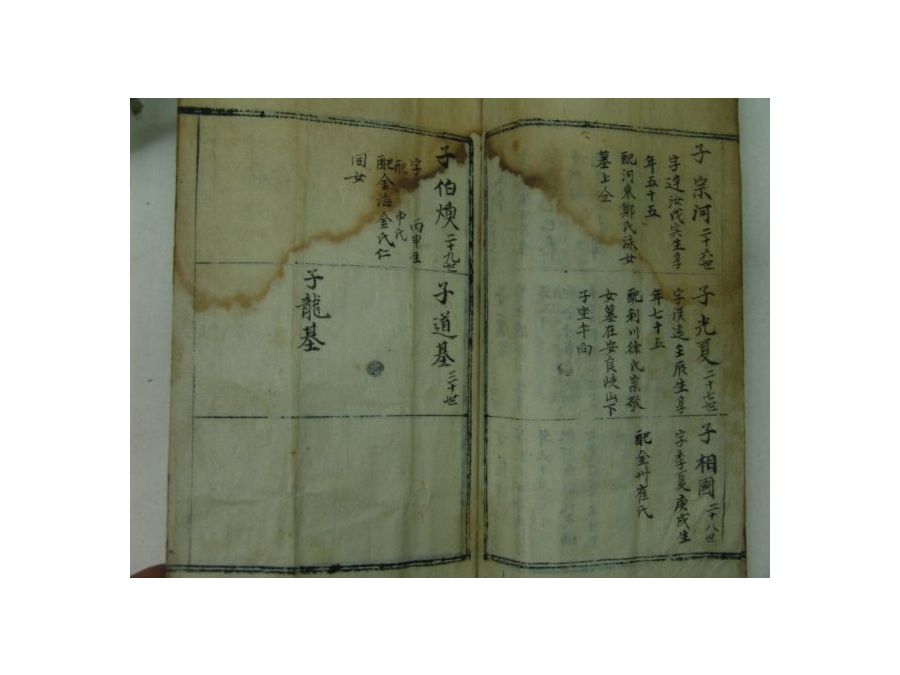 子宗河二十六世
字達汝戊寅生享
年五十五
配河東鄭氏泳女
墓上仝
子光夏二十七世
字漢遠壬辰生享
年七十五
配利川徐氏宗敬
女墓在安良峙山下
子坐午向
子相國二十八世
字季夏庚戌生
配全州崔氏
子伯煥二十九世
字 丙申生
配 申氏
配金海金氏仁
同女
子道基三十世
子龍基